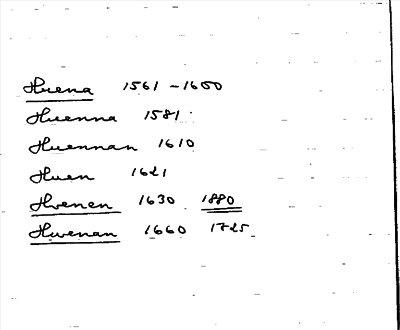 Huena 1561 - 1600
Huenna 1581.
Huennan 1610
Huen 1621
Hvenen 1630 1880
Hwenan 1660 1725